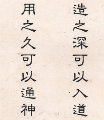 造之深可以入道
用之久可以通神